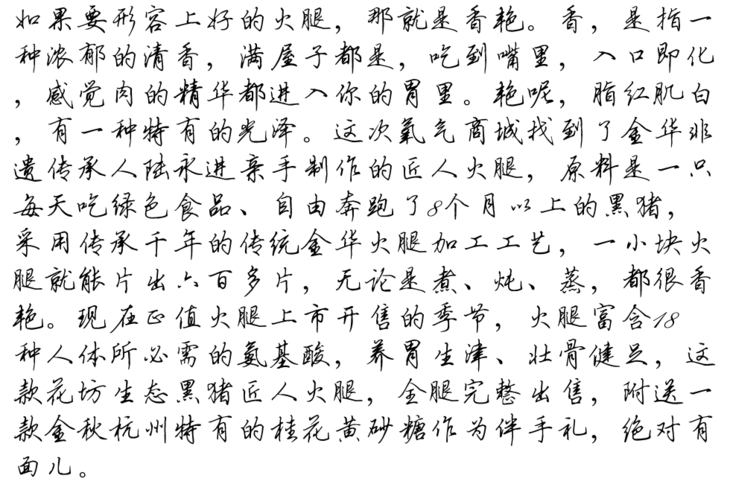 如果要形容上好的火腿，那就是香艳。香，是指一
种浓郁的清香，满屋子都是，吃到嘴里，入口即化
，感觉肉的精华都进入你的胃里。艳呢，脂红肌白
，有一种特有的光泽。这次氧气商城找到了金华非
遗传承人陆永进亲手制作的匠人火腿，原料是一只
每天吃绿色食品、自由奔跑了8个月以上的黑猪，
采用传承千年的传统金华火腿加工工艺，一小块火
腿就能片出六百多片，无论是煮、炖、蒸，都很香
艳。现在正值火腿上市开售的季节，火腿富含18
种人体所必需的氨基酸，养胃生津、壮骨健足，这
款花坊生态黑猪匠人火腿，全腿完整出售，附送一
款金秋杭州特有的桂花黄砂糖作为伴手礼，绝对有
面儿。